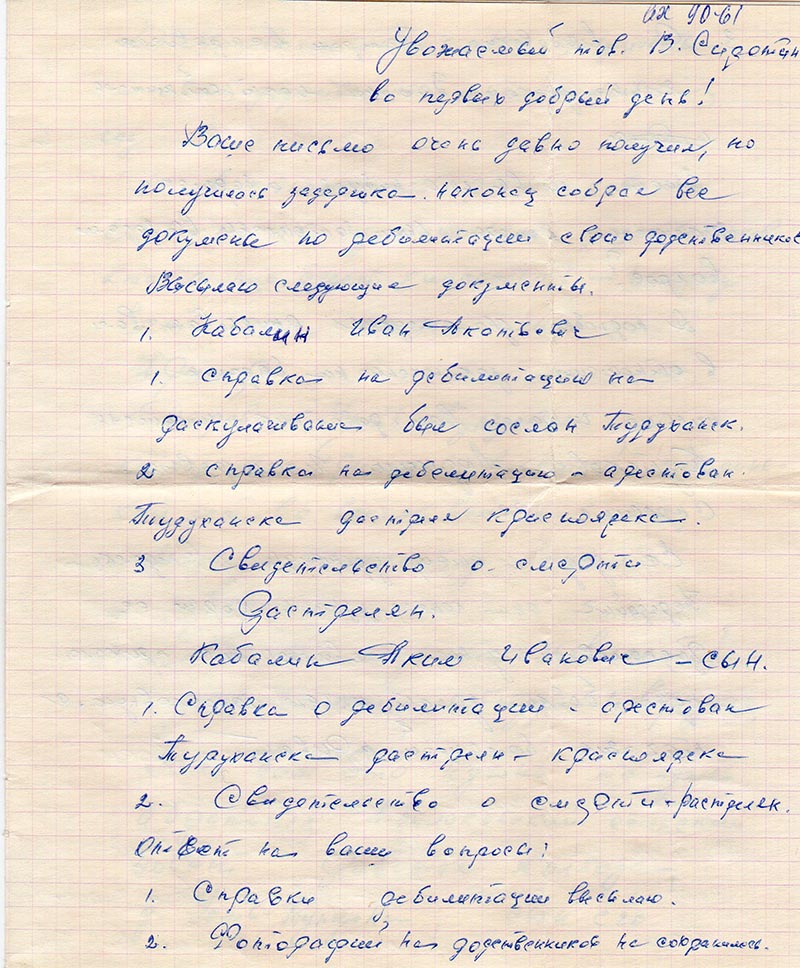 вх 90-61
Уважаемый тов. В. Сиротин
во первых добрый день!
Ваше письмо очень давно получил, но
получилось задержка. наконец собрал все
документы по ребилитации своих родственников
Высылаю следующие документы.
1. Кабалин Иван
1. справка на ребилитацию на
раскулачивания был сослан Туруханск.
2 справка на ребелитацию – арестован.
Туруханска растрелян Красноярска.
3 Свидетельство о смерти
Растрелян.
Кабалин Аким Иванович – сын.
1. Справка о ребилитации – арестован
Туруханска растрелян – Красноярска
2. Свидетельство о смерти – растрелян.
Ответ на ваши вопросы:
1. Справки ребилитации высылаю.
2. Фотографий на родственников не сохранилось.